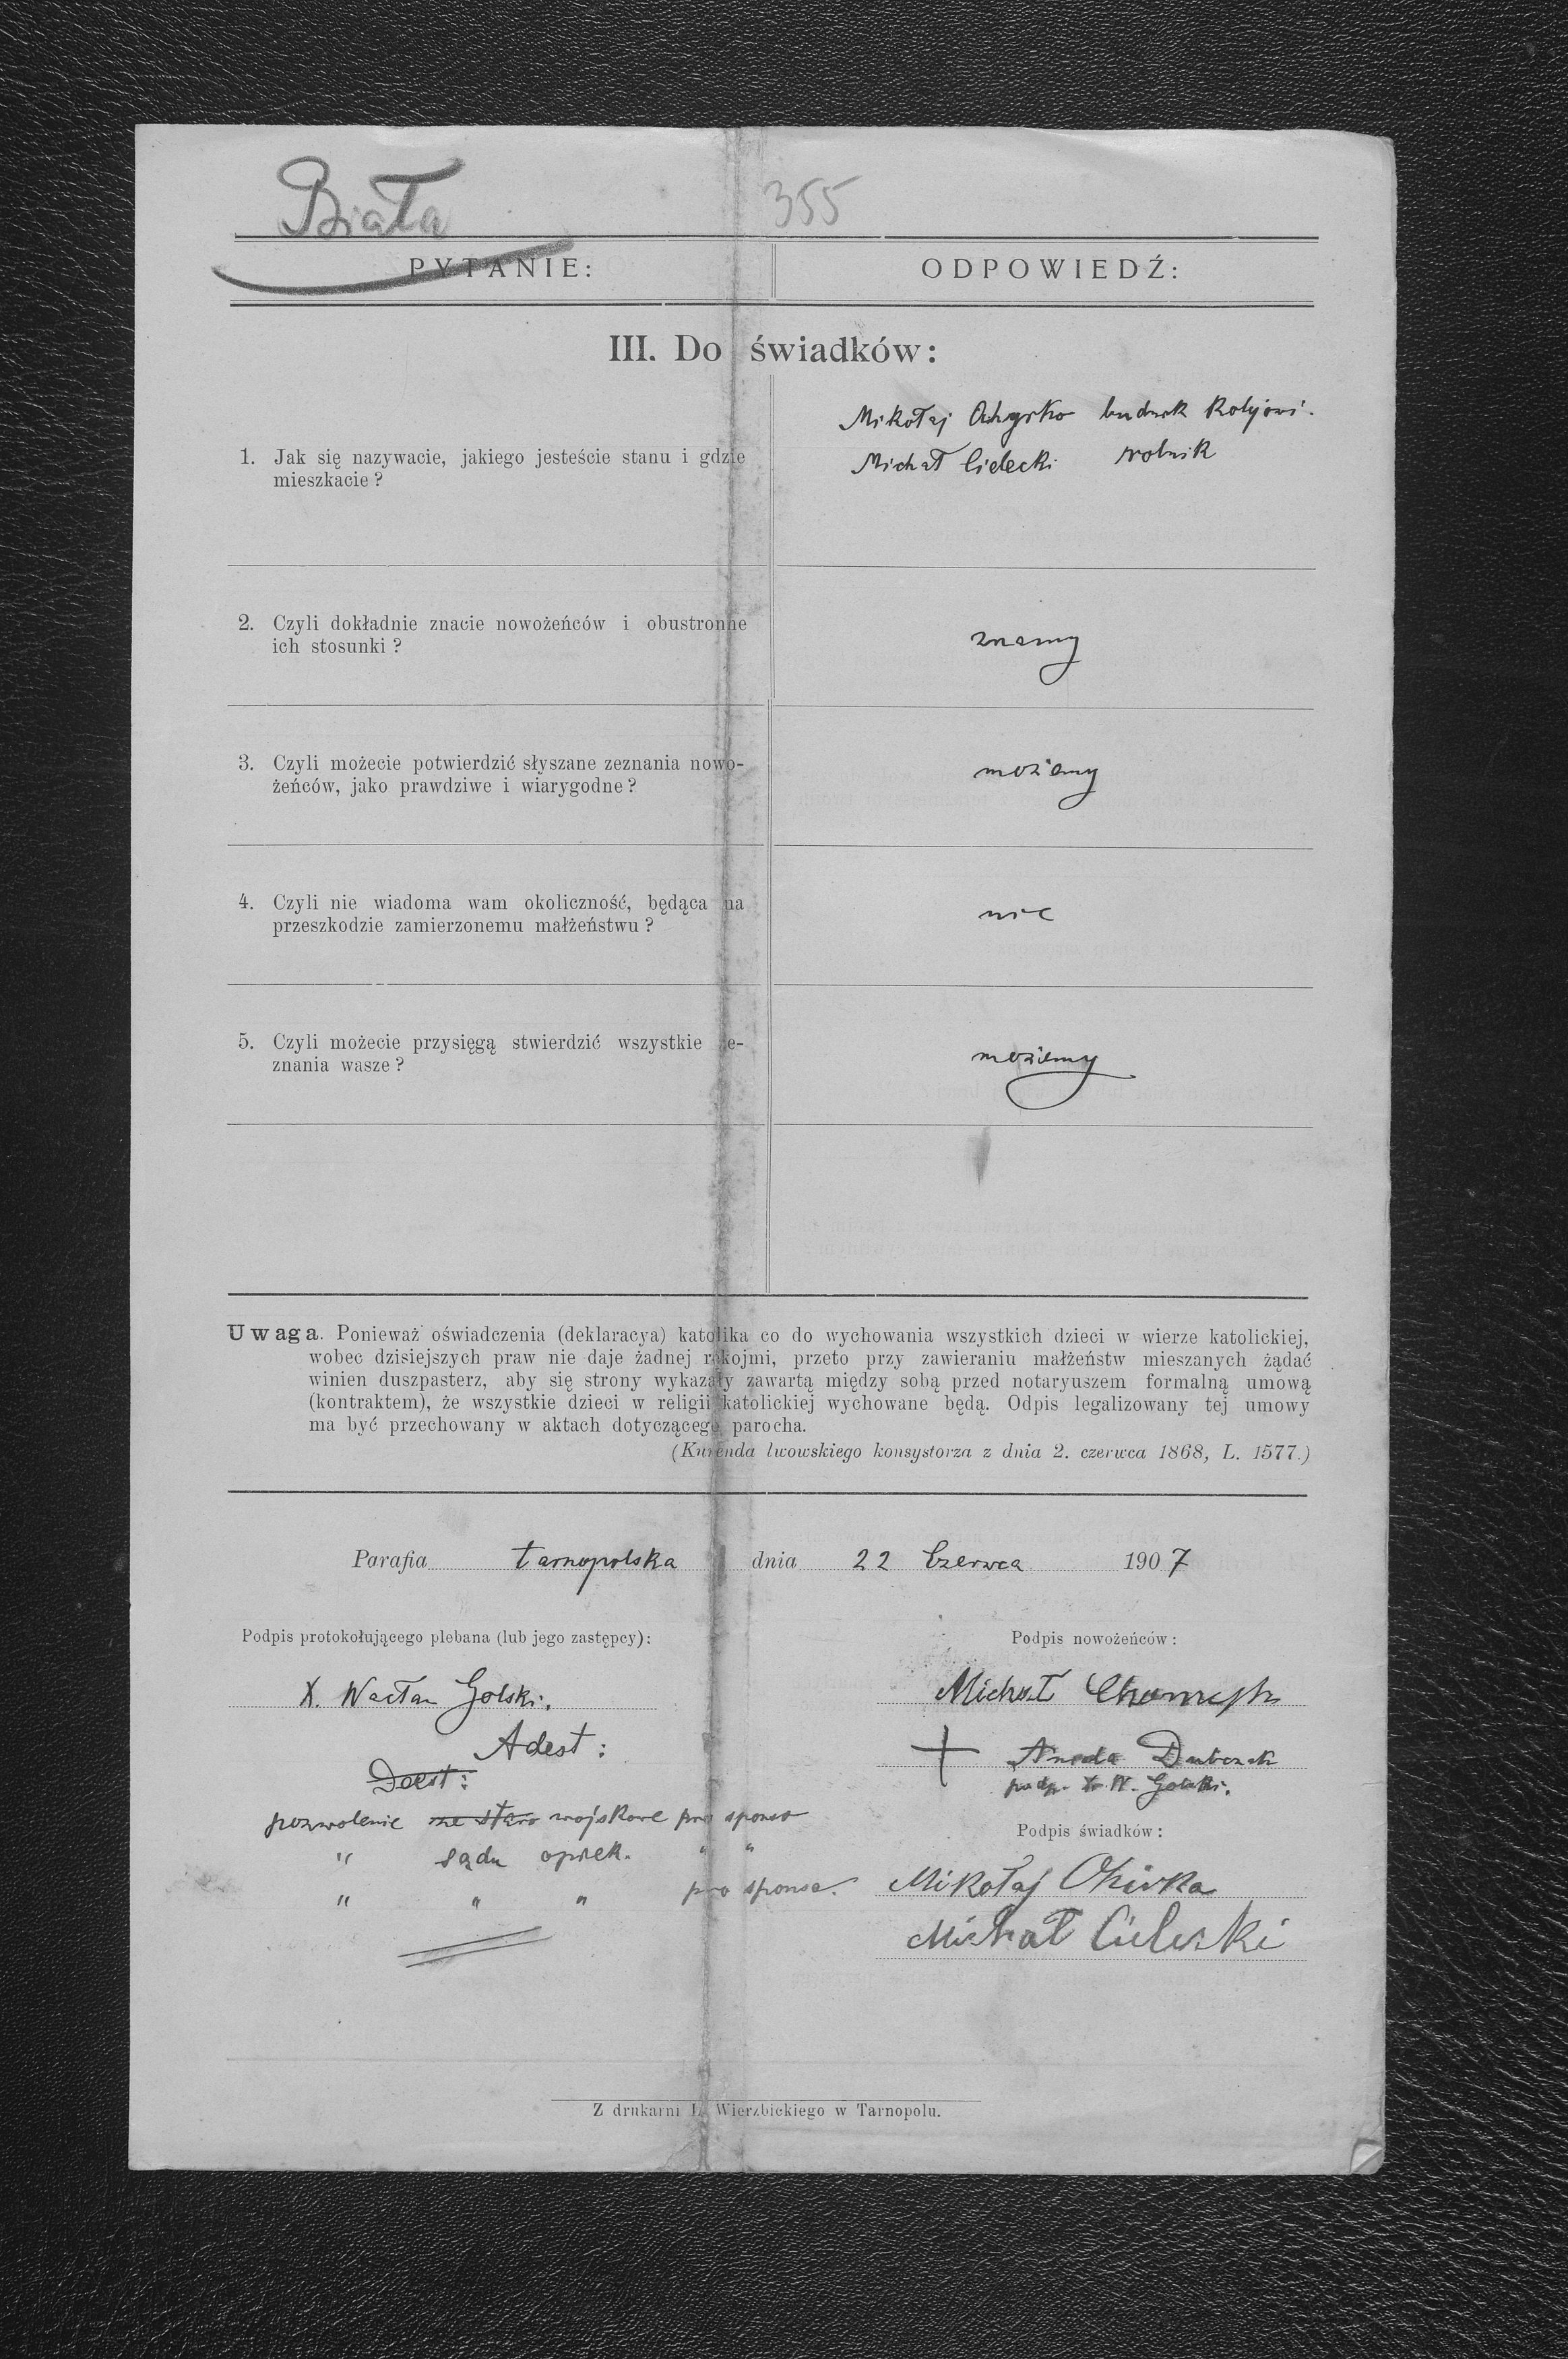 Biała
355
PYTANIE:
ODPOWIEDŹ:
III. Do świadków:
1. Jak się nazywacie, jakiego jesteście stanu i gdzie
mieszkacie?
Mikołaj budnik Kolejowi.
Michał Cielecki rolnik
2. Czyli dokładnie znacie nowożeńców i obustronne
ich stosunki?
znamy
3. Czyli możecie potwierdzić słyszane zeznania nowo-
żeńców, jako prawdziwe i wiarygodne?
możemy
4. Czyli nie wiadoma wam okoliczność, będąca na
przeszkodzie zamierzonemu małżeństwu?
nie
5. Czyli możecie przysięgą stwierdzić wszystkie ze-
znania wasze?
możemy
Uwaga. Ponieważ oświadczenia (deklaracya) katolika co do wychowania wszystkich dzieci w wierze katolickiej,
wobec dzisiejszych praw nie daje żadnej rękojmi, przeto przy zawieraniu małżeństw mieszanych żądać
winien duszpasterz, aby się strony wykazały zawartą między sobą przed notaryuszem formalną umową
(kontraktem), że wszystkie dzieci w religii katolickiej wychowane będą. Odpis legalizowany tej umowy
ma być przechowany w aktach dotyczącego parocha.
(Kurenda lwowskiego konsystorza z dnia 2. czerwca 1868, L. 1577.)
Parafia tarnopolska dnia 22 Czerwca 1907
Podpis protokołującego plebana (lub jego zastępcy):
X. Wacław Golski.
Adest:
Deest:
pozwolenie wojskowe pro sponso
" sądu opiek. " "
" " " pro sponsa.
Podpis nowożeńców:
Michał
+ Dubczak
podp. X. W. Golski.
Podpis świadków:
Mikołaj
Michał Cielecki
Z drukarni L. Wierzbickiego w Tarnopolu.